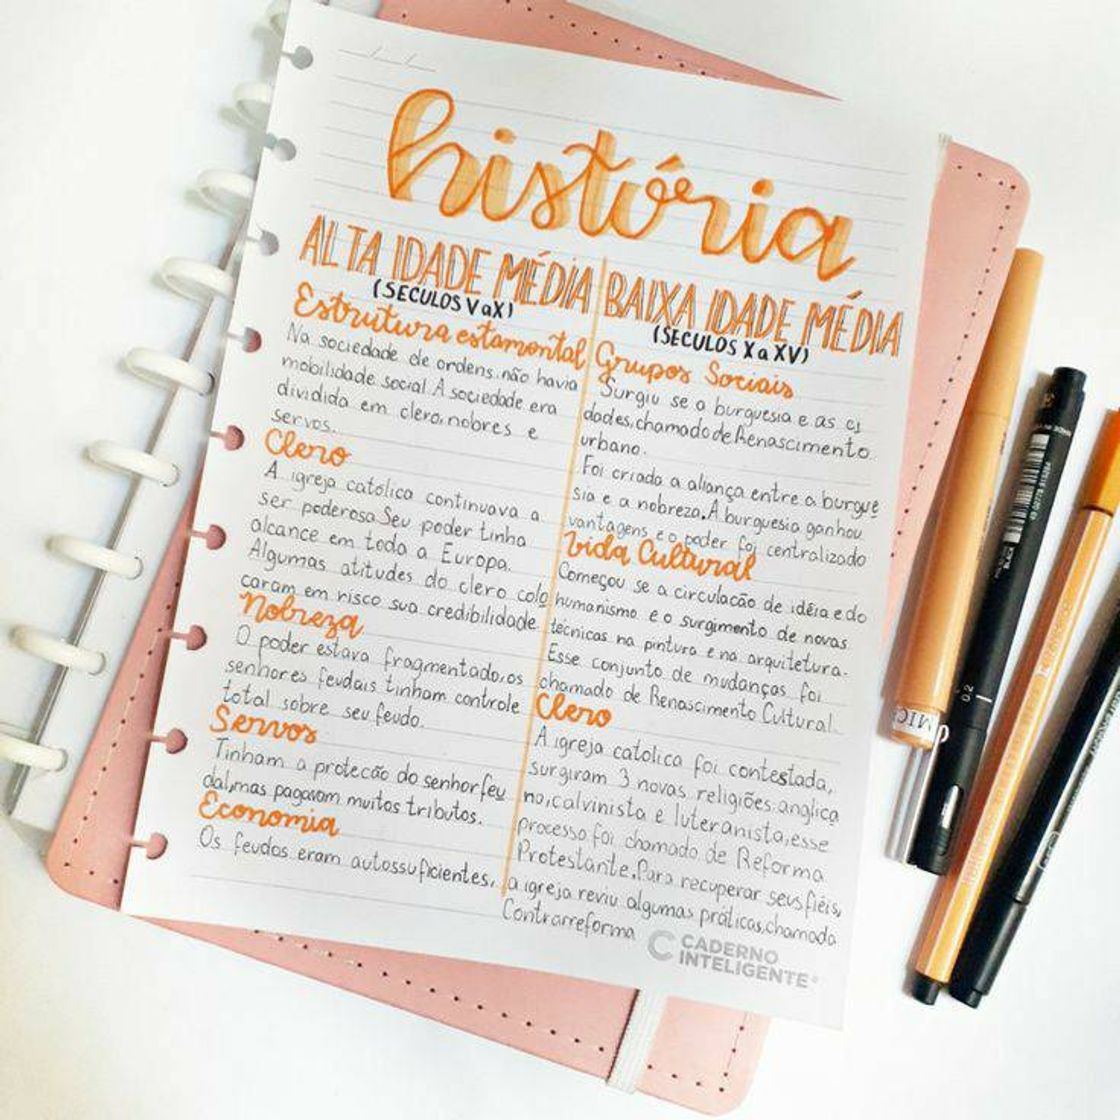 história
ALTA IDADE MÉDIA
(SECULOS V a X)
Estrutura estamental
Na sociedade de ordens, não havia
mobilidade social. A sociedade era
dividida em clero, nobres e
servos.
Clero
A igreja católica continuava a
ser poderosa. Seu poder tinha
alcance em toda a Europa.
Algumas atitudes do clero colo
caram em risco sua credibilidade.
Nobreza
O poder estava fragmentado, os
senhores feudais tinham controle
total sobre seu feudo.
Servos
Tinham a protecão do senhor feu
dal, mas pagavam muitos tributos.
Economia
Os feudos eram autossuficientes,
BAIXA IDADE MÉDIA
(SECULOS X a XV)
Grupos Sociais
Surgiu se a burguesia e as ci
dades, chamado de Renascimento
urbano.
Foi criada a aliança entre a burgue
sia e a nobreza. A burguesia ganhou
vantagens e o poder foi centralizado
Vida Cultural
Começou se a circulacão de idéia e do
humanismo e o surgimento de novas
tecnicas na pintura e na arquitetura.
Esse conjunto de mudanças foi
chamado de Renascimento Cultural.
Clero
A igreja católica foi contestada,
surgiram 3 novas religiões: anglica
na, calvinista e luteranista, esse
processo foi chamado de Reforma
Protestante. Para recuperar seus fiéis,
a igreja reviu algumas práticas, chamada
Contrarreforma
CADERNO
INTELIGENTE®
MIC
0.2